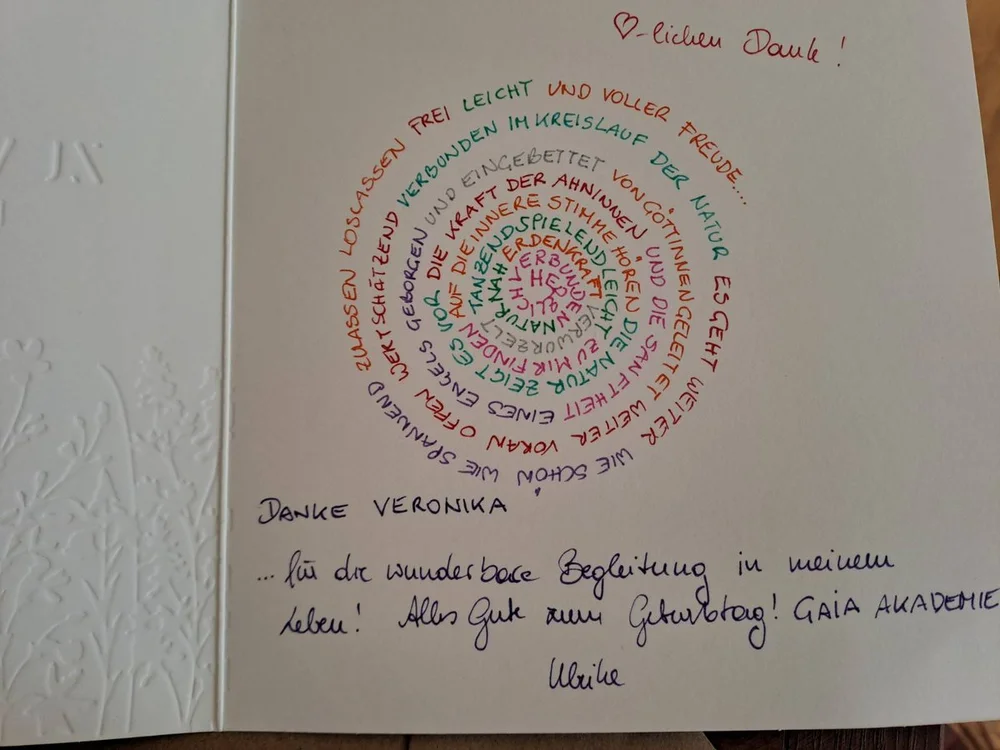 ♡-lichen Dank!
HERZLICH VERBUNDEN NATURNAH ERDENKRAFT VERWURZELT TANZEND SPIELEND LEICHT ZU MIR FINDEN AUF DIE INNERE STIMME HÖREN DIE NATUR ZEIGT ES VOR DIE KRAFT DER AHNINNEN UND DIE SANFTHEIT EINES ENGELS GEBORGEN UND EINGEBETTET VON GÖTTINNEN GELEITET WEITER VORAN OFFEN WERTSCHÄTZEND VERBUNDEN IM KREISLAUF DER NATUR ES GEHT WEITER WIE SCHÖN WIE SPANNEND ZULASSEN LOSLASSEN FREI LEICHT UND VOLLER FREUDE...
DANKE VERONIKA
... für die wunderbare Begleitung in meinem
Leben! Alles Gute zum Geburtstag! GAIA AKADEMIE
Ulrike